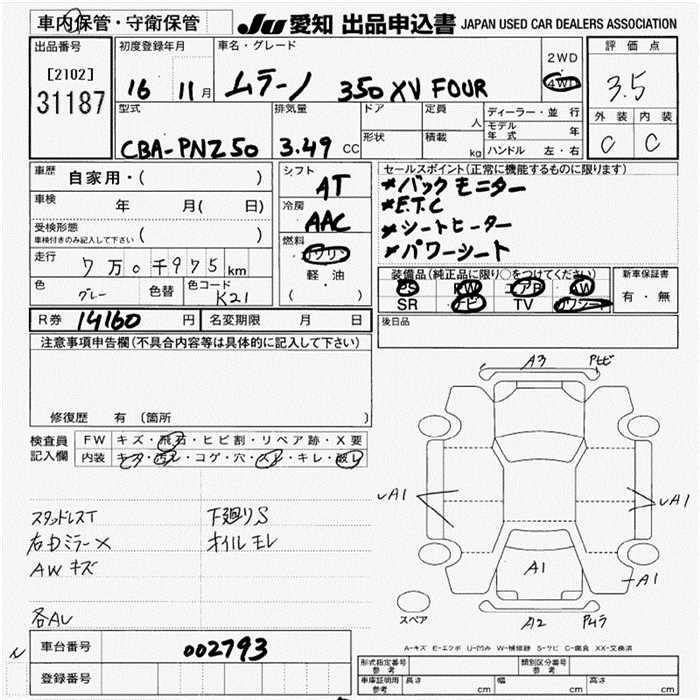 車内保管・守衛保管
JU 愛知 出品申込書 JAPAN USED CAR DEALERS ASSOCIATION
出品番号
[2102]
31187
初度登録年月
16 11月
車名・グレード
ムラーノ 350 XV FOUR
2WD
4WD
評価点
3.5
外装 内装
C C
型式
CBA-PNZ50
排気量
3.49 CC
ドア
形状
定員
人
積載
kg
ディーラー・並行
モデル年式 年
ハンドル 左・右
車歴 自家用・( )
車検 年 月( 日)
受検形態
車検付きのみ記入して下さい ( )
走行 7万0千975km
色 グレー 色替 色コード K21
シフト
AT
冷房
AAC
燃料
ガソリン
軽・油
( )
セールスポイント(正常に機能するものに限ります)
*バックモニター
*E.T.C
*シートヒーター
*パワーシート
装備品(純正品に限り○をつけてください)
PS PW エアB AW
SR ナビ TV カワシート
新車保証書
有・無
R券 14160 円 名変期限 月 日
後日品
注意事項申告欄(不具合内容等は具体的に記入して下さい)
修復歴 有(箇所 )
検査員
記入欄
FW キズ・飛石・ヒビ割・リペア跡・X要
内装 キズ・汚レ・コゲ・穴・スレ・キレ・破レ
スタッドレスT 下廻りS
右Dミラー X オイルモレ
AW キズ
各AU
A3 Pヒビ
A1
A1
A1
A1
A2 Pムラ
スペア
A-キズ E-エクボ U-凹み W-補修跡 S-サビ C-腐食 XX-交換済
車台番号 002793
登録番号
形式指定番号
参考
類別区分番号
参考
車庫証明用
参考
長さ cm 幅 cm 高さ cm